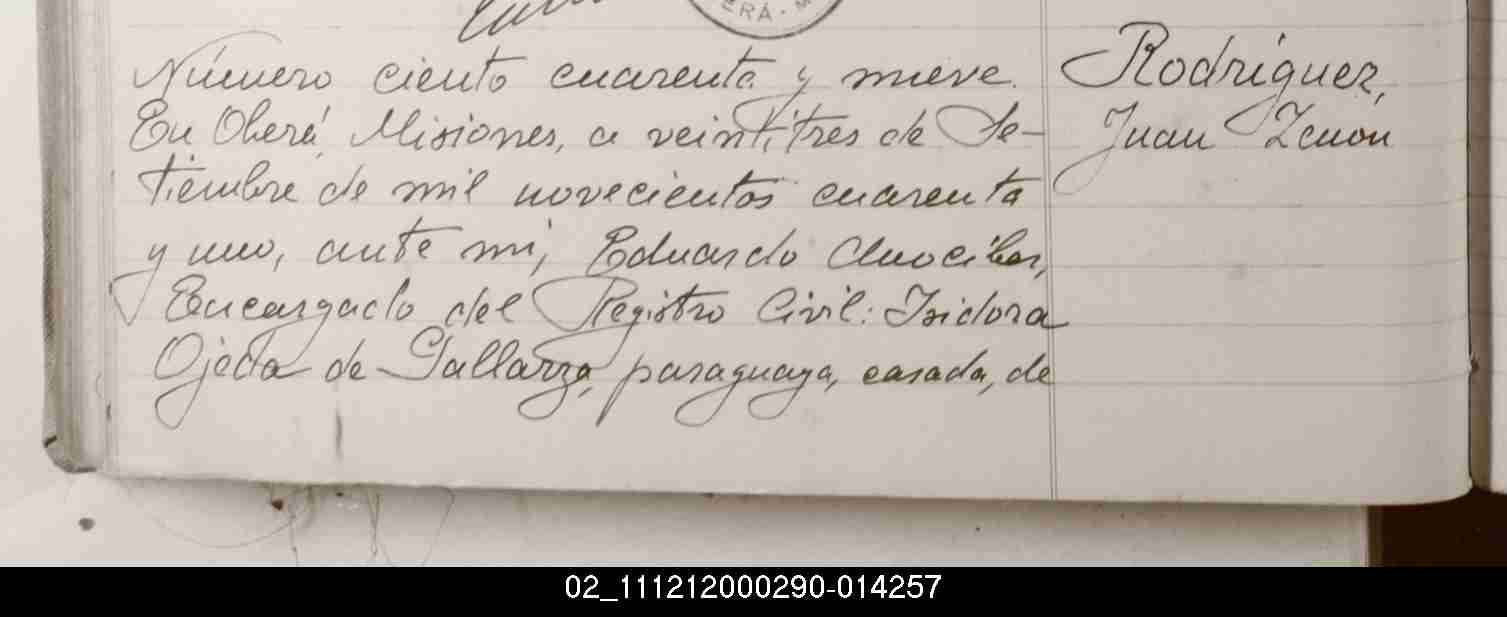 ERÁ · M
Número ciento cuarenta y nueve.
En Oberá, Misiones, a veintitres de Se-
tiembre de mil novecientos cuarenta
y uno, ante mi, Eduardo
Encargado del Registro Civil: Isidora
Ojeda de Gallarza, paraguaya, casada, de
Rodríguez,
Juan Zenon
02_111212000290-014257